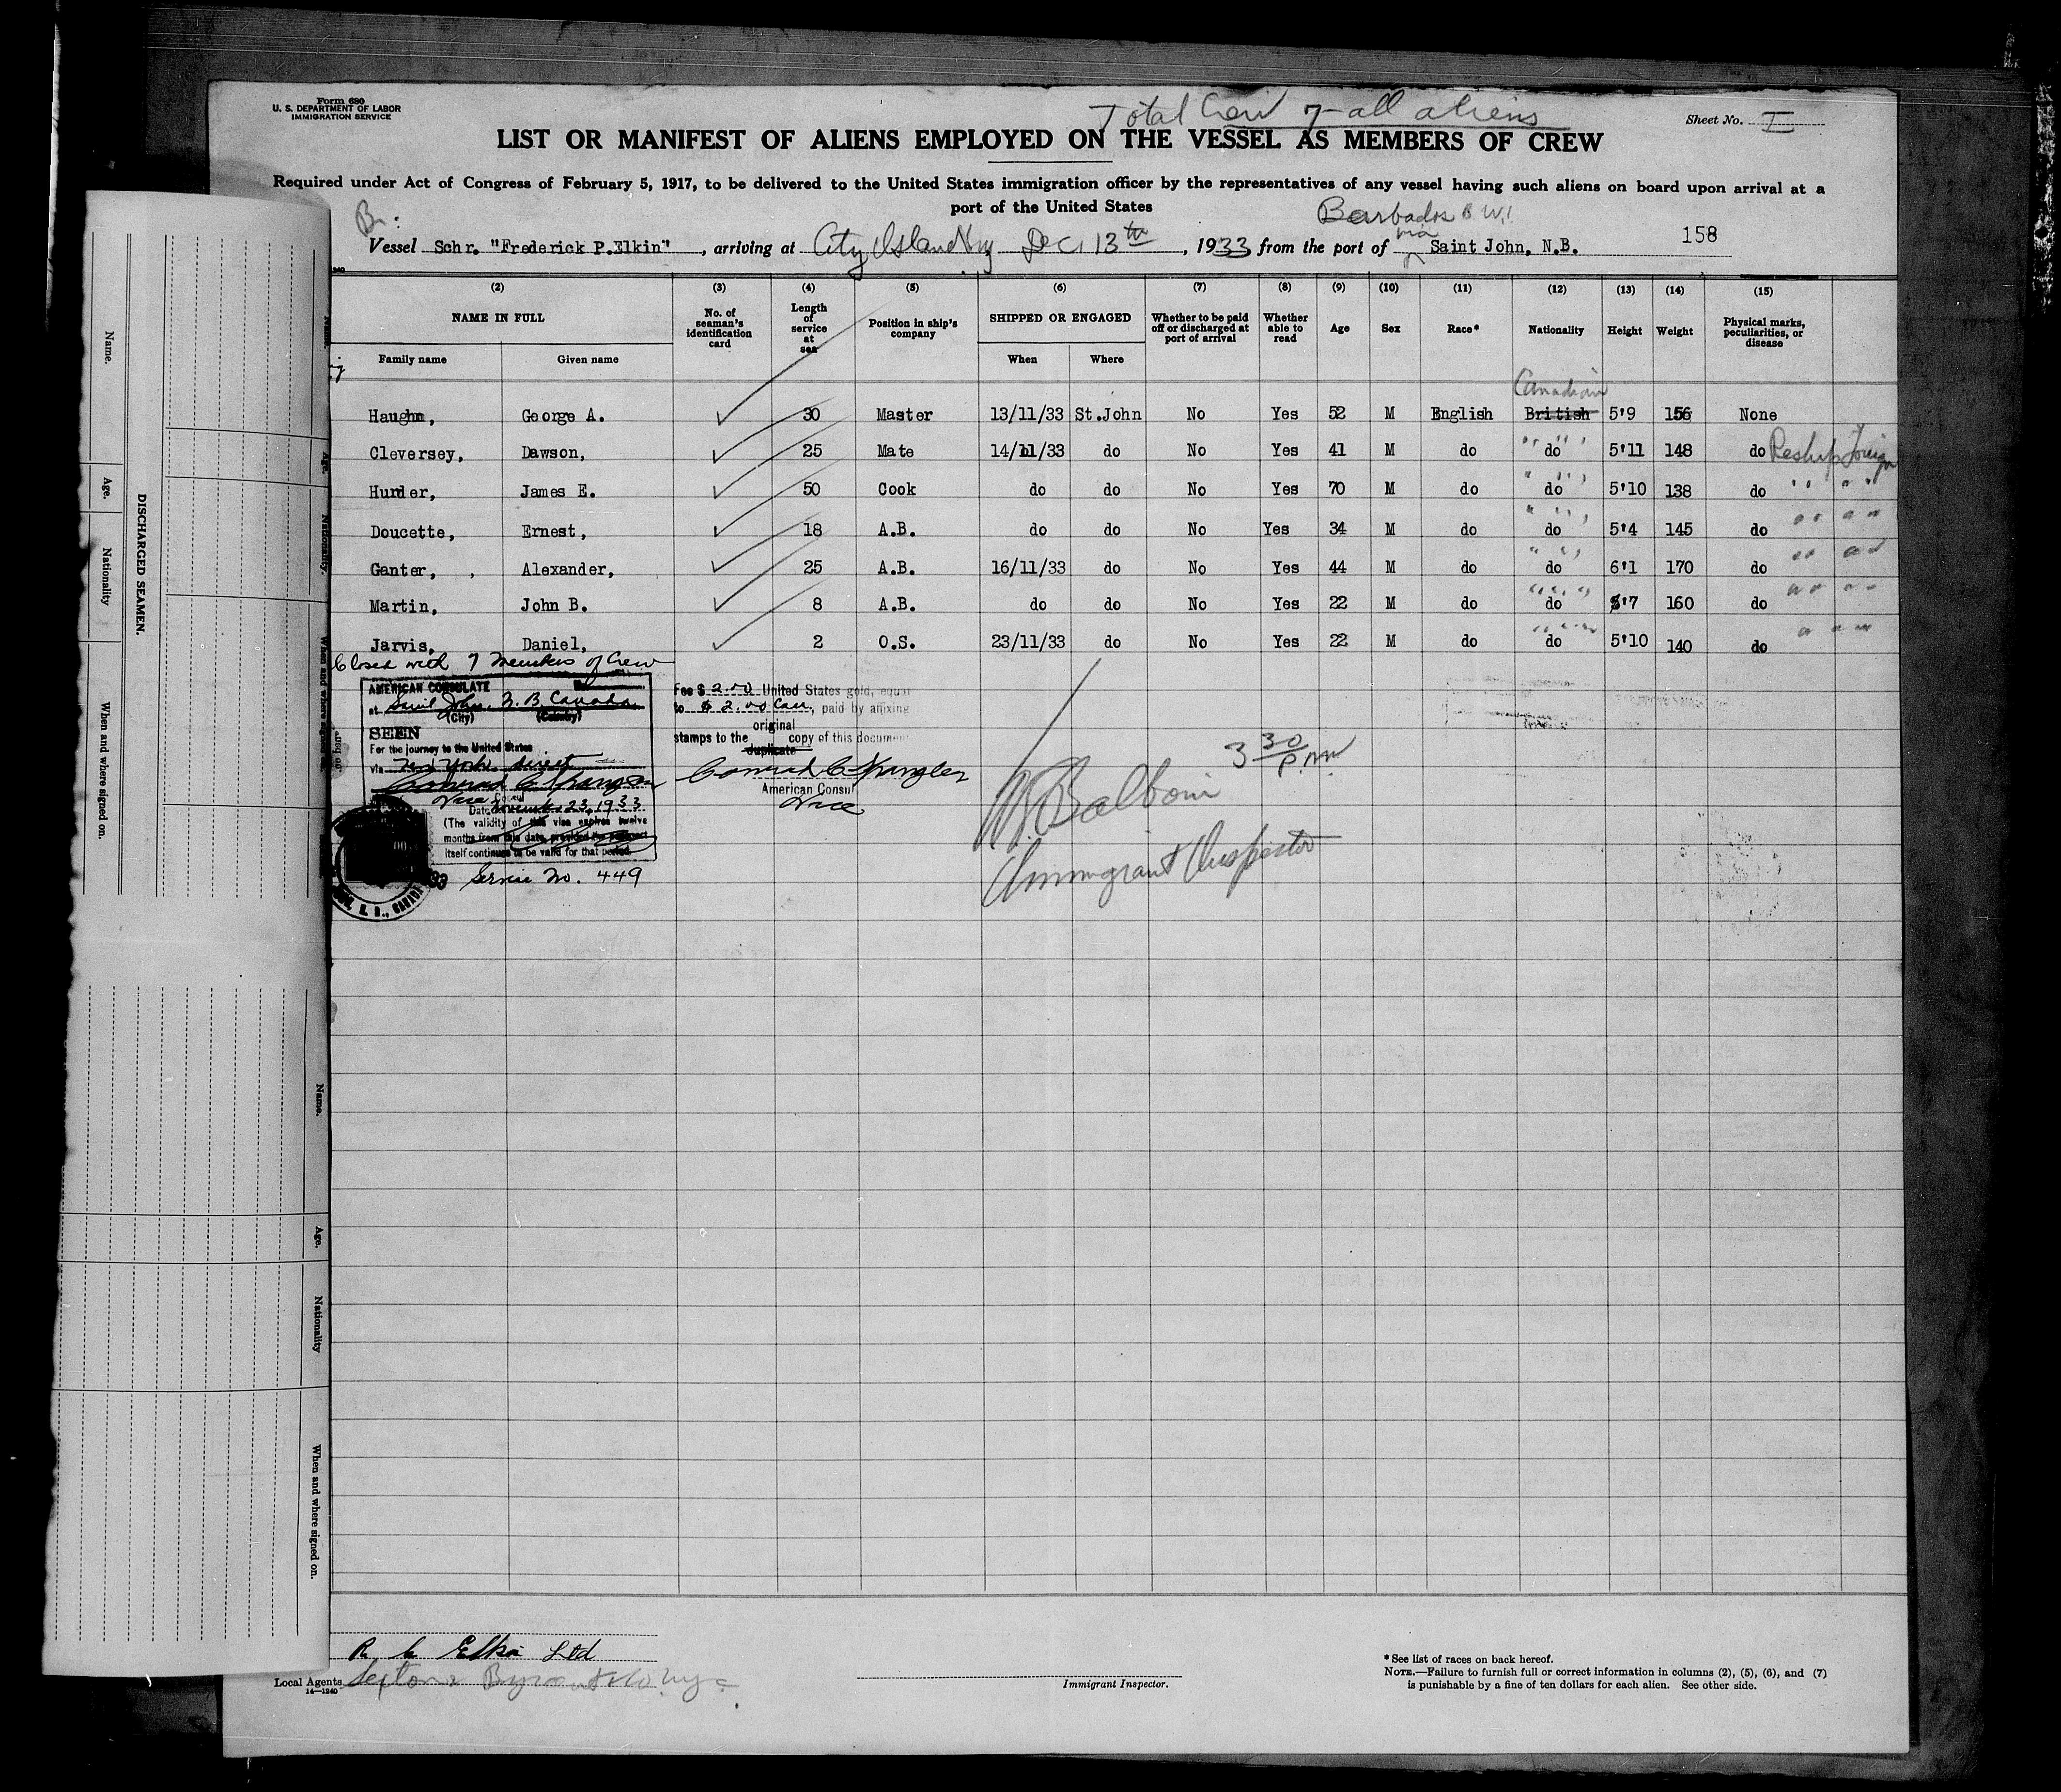 Form 680
U. S. DEPARTMENT OF LABOR
IMMIGRATION SERVICE
Total Crew 7 - all aliens
Sheet No. I
LIST OR MANIFEST OF ALIENS EMPLOYED ON THE VESSEL AS MEMBERS OF CREW
Required under Act of Congress of February 5, 1917, to be delivered to the United States immigration officer by the representatives of any vessel having such aliens on board upon arrival at a
port of the United States
Br.
Barbados B.W.I.
via
Vessel Schr. "Frederick P.Elkin", arriving at City Island Ny Dec 13th, 1933 from the port of Saint John, N.B.
158
(2) (3) (4) (5) (6) (7) (8) (9) (10) (11) (12) (13) (14) (15)
NAME IN FULL No. of seaman's identification card Length of service at sea Position in ship's company SHIPPED OR ENGAGED Whether to be paid off or discharged at port of arrival Whether able to read Age Sex Race* Nationality Height Weight Physical marks, peculiarities, or disease
Family name Given name When Where
Canadian
Haughn, George A. 30 Master 13/11/33 St.John No Yes 52 M English British 5'9 156 None
Cleversey, Dawson, 25 Mate 14/11/33 do No Yes 41 M do do 5'11 148 do Reship Foreign
Hurder, James E. 50 Cook do do No Yes 70 M do do 5'10 138 do " " " "
Doucette, Ernest, 18 A.B. do do No Yes 34 M do do 5'4 145 do " " " "
Ganter, Alexander, 25 A.B. 16/11/33 do No Yes 44 M do do 6'1 170 do " " " "
Martin, John B. 8 A.B. do do No Yes 22 M do do 5'7 160 do " " " "
Jarvis, Daniel, 2 O.S. 23/11/33 do No Yes 22 M do do 5'10 140 do " " "
Closed with 7 Members of Crew
AMERICAN CONSULATE
at Saint John, N.B. Canada.
(City) (Country)
SEEN
For the journey to the United States
via New York direct
Conrad C Spangler
Vice Consul
Date November 23, 1933
(The validity of this visa expires twelve
months from this date, provided the passport
itself continues to be valid for that period.
Service No. 449
N. B., CANADA
Fee $ 2.00 United States gold, equal
to $ 2.00 Can, paid by affixing
original
stamps to the copy of this document
duplicate
Conrad C Spangler
American Consul
Vice
3 30 P.M.
Balboni
Immigrant Inspector
DISCHARGED SEAMEN.
Name.
Age.
Nationality
When and where signed on.
Age.
Nationality.
When and where signed
Name.
Age.
Nationality
When and where signed on.
R. C. Elkin Ltd
Local Agents
14—1240
Immigrant Inspector.
* See list of races on back hereof.
NOTE.—Failure to furnish full or correct information in columns (2), (5), (6), and (7)
is punishable by a fine of ten dollars for each alien. See other side.